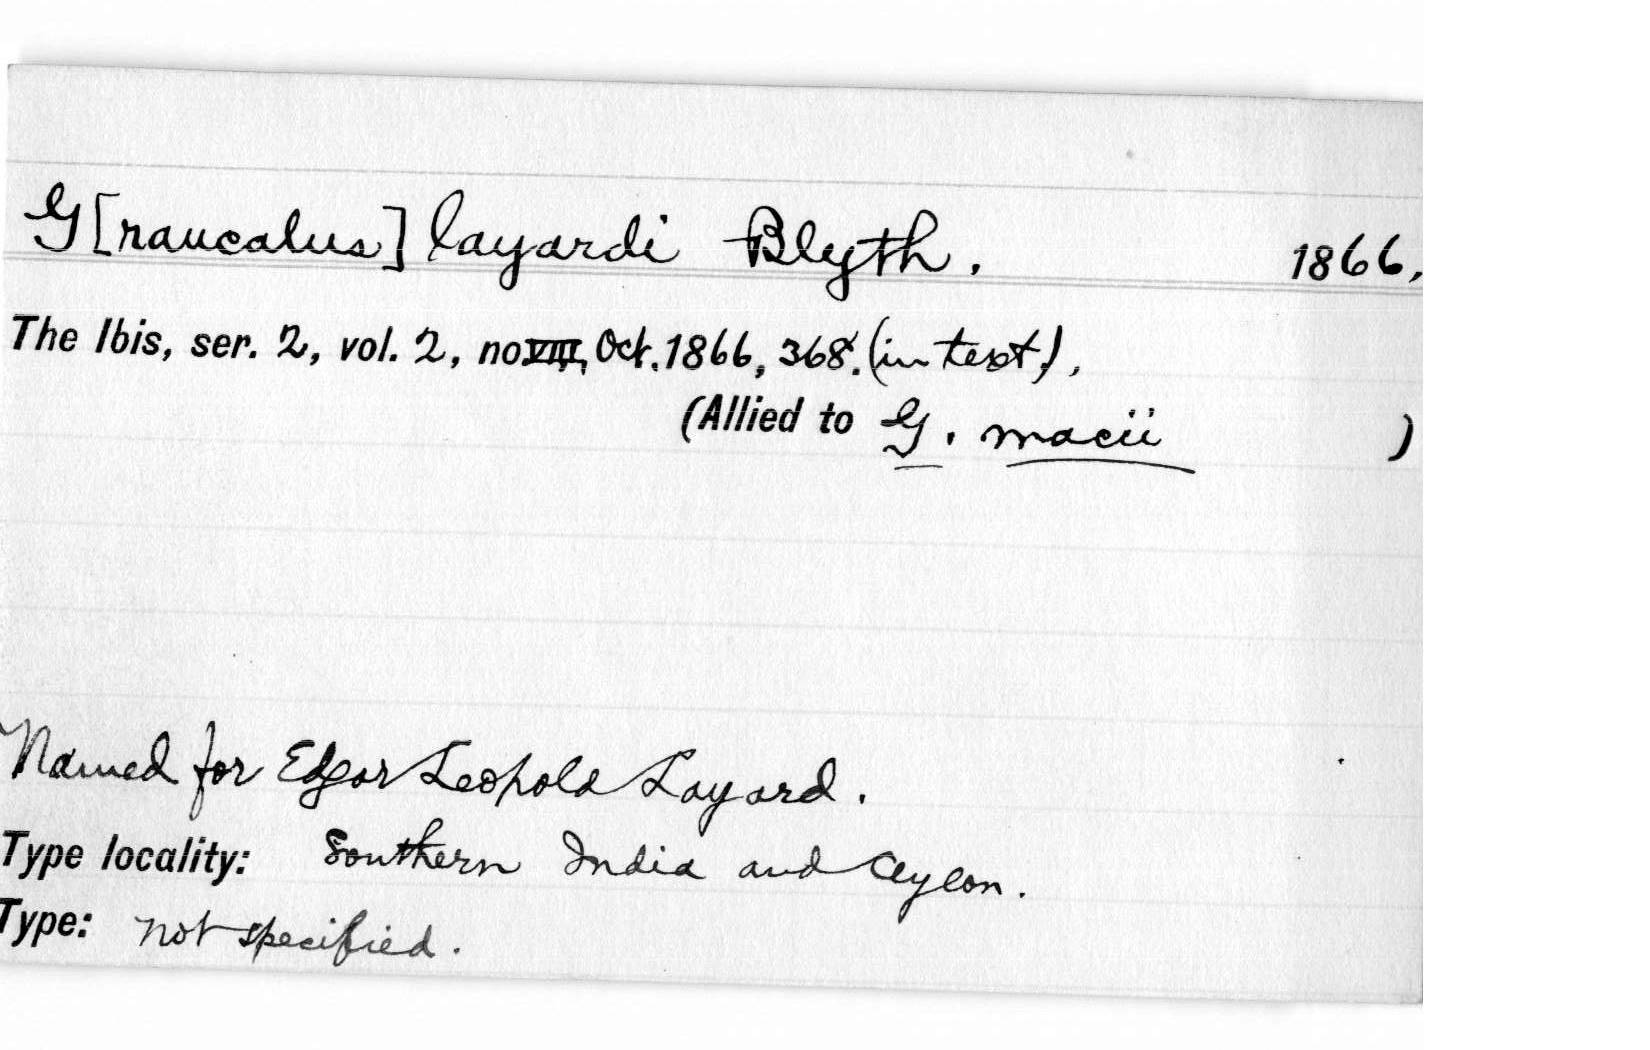 G[raucalus] layardi Blyth. 1866,
The Ibis, ser. 2, vol. 2, no VIII, Oct. 1866, 368. (in text),
(Allied to G. macii )
Named for Edgar Leopold Layard.
Type locality: Southern India and Ceylon.
Type: not specified.